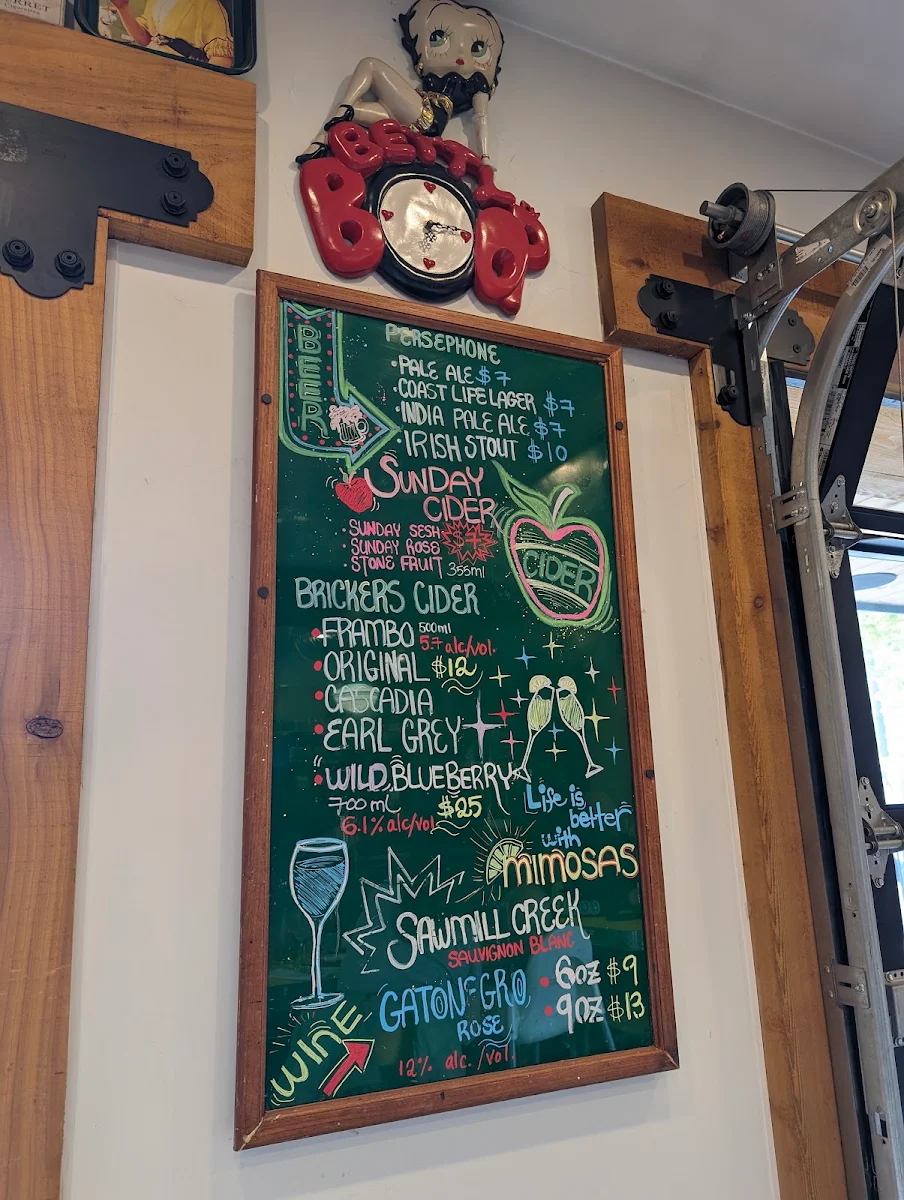 RRET
BETTY
BOP
BEER
PERSEPHONE
• PALE ALE $7
• COAST LIFE LAGER $7
• INDIA PALE ALE $7
• IRISH STOUT $10
SUNDAY
CIDER
• SUNDAY SESH
• SUNDAY ROSE $7
• STONE FRUIT 355ml
CIDER
BRICKERS CIDER
• FRAMBO 500ml
5.7 alc/vol.
• ORIGINAL $12
• CASCADIA
• EARL GREY
• WILD BLUEBERRY
700 mL $25
6.1% alc/vol
Life is
better
with
MIMOSAS
SAWMILL CREEK
SAUVIGNON BLANC
GATONEGRO
ROSE
• 6oz $9
• 9oz $13
12% alc./vol.
WINE